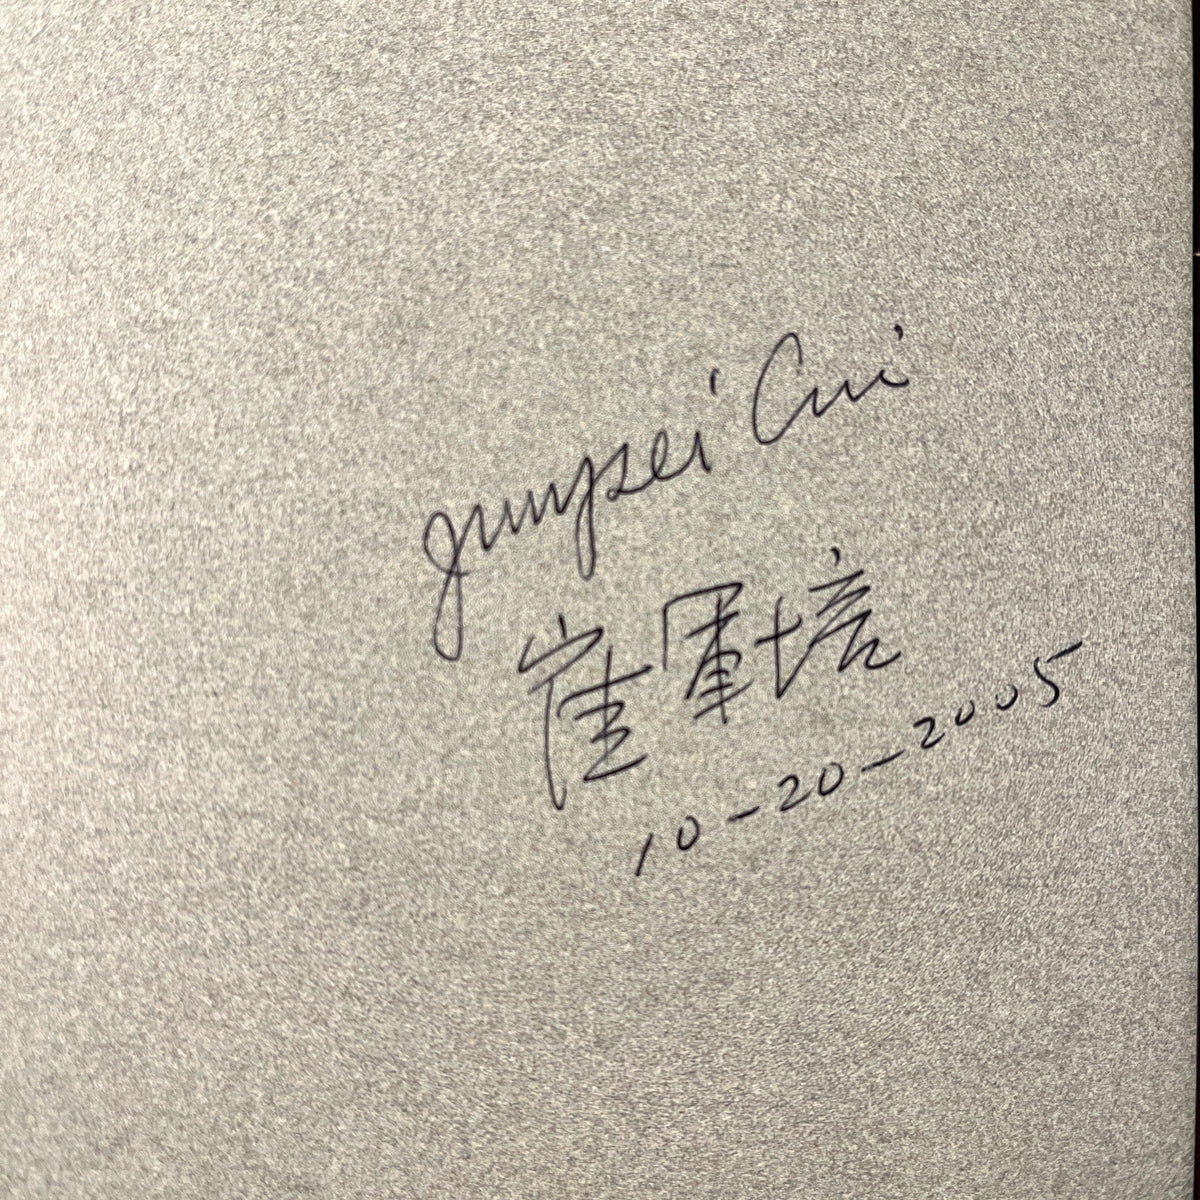 Junpei Cui
崔軍培
10-20-2005